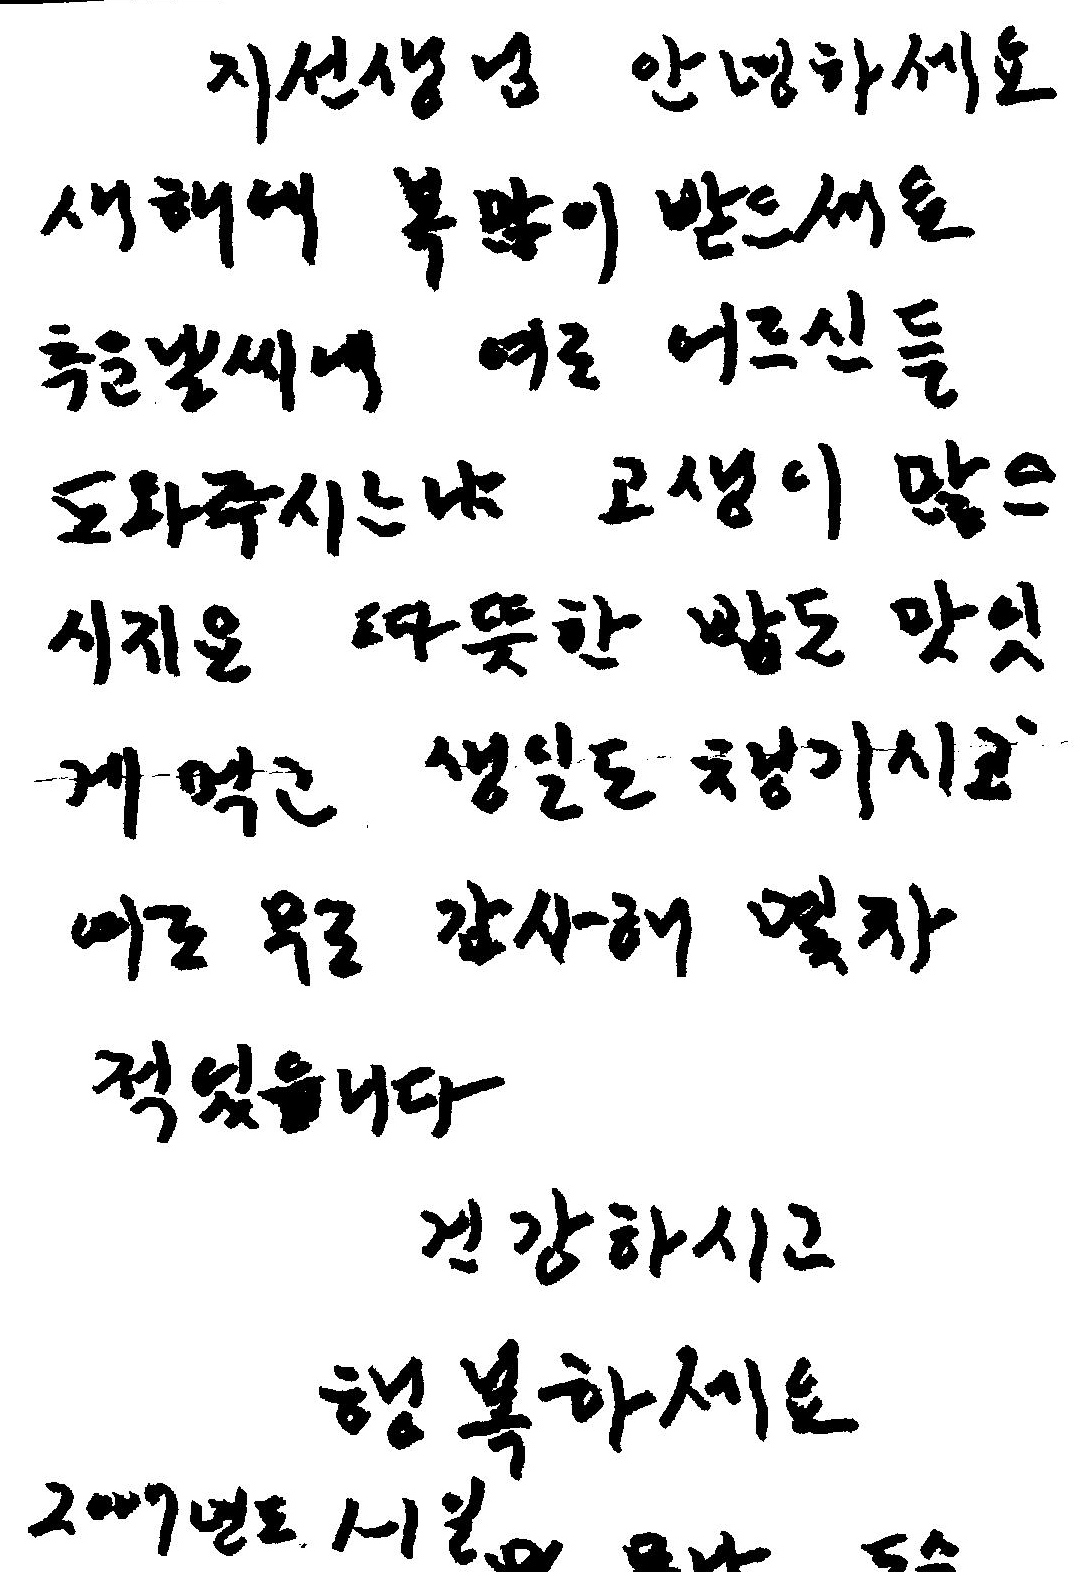 지선생님 안녕하세요
새해에 복많이 받드세요
추운날씨에 여로 어르신들
도와주시느냐 고생이 많으
시지요 따뜻한 밥도 맛잇
게 먹고 생일도 챙기시고
여로 무로 감사해 몇자
적었읍니다
건강하시고
행복하세요
2007년도